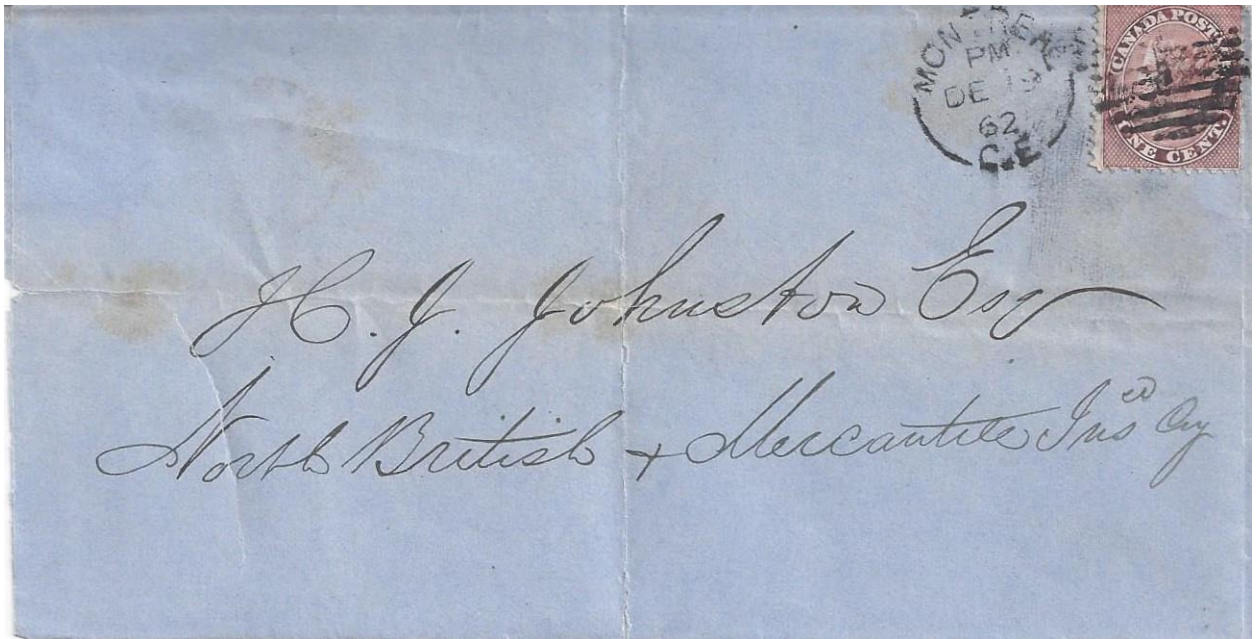 MONTREAL
PM
DE 13
62
C.E
CANADA POSTAGE
ONE CENT.
H. J. Johnston Esq
North British + Mercantile Insce Cy